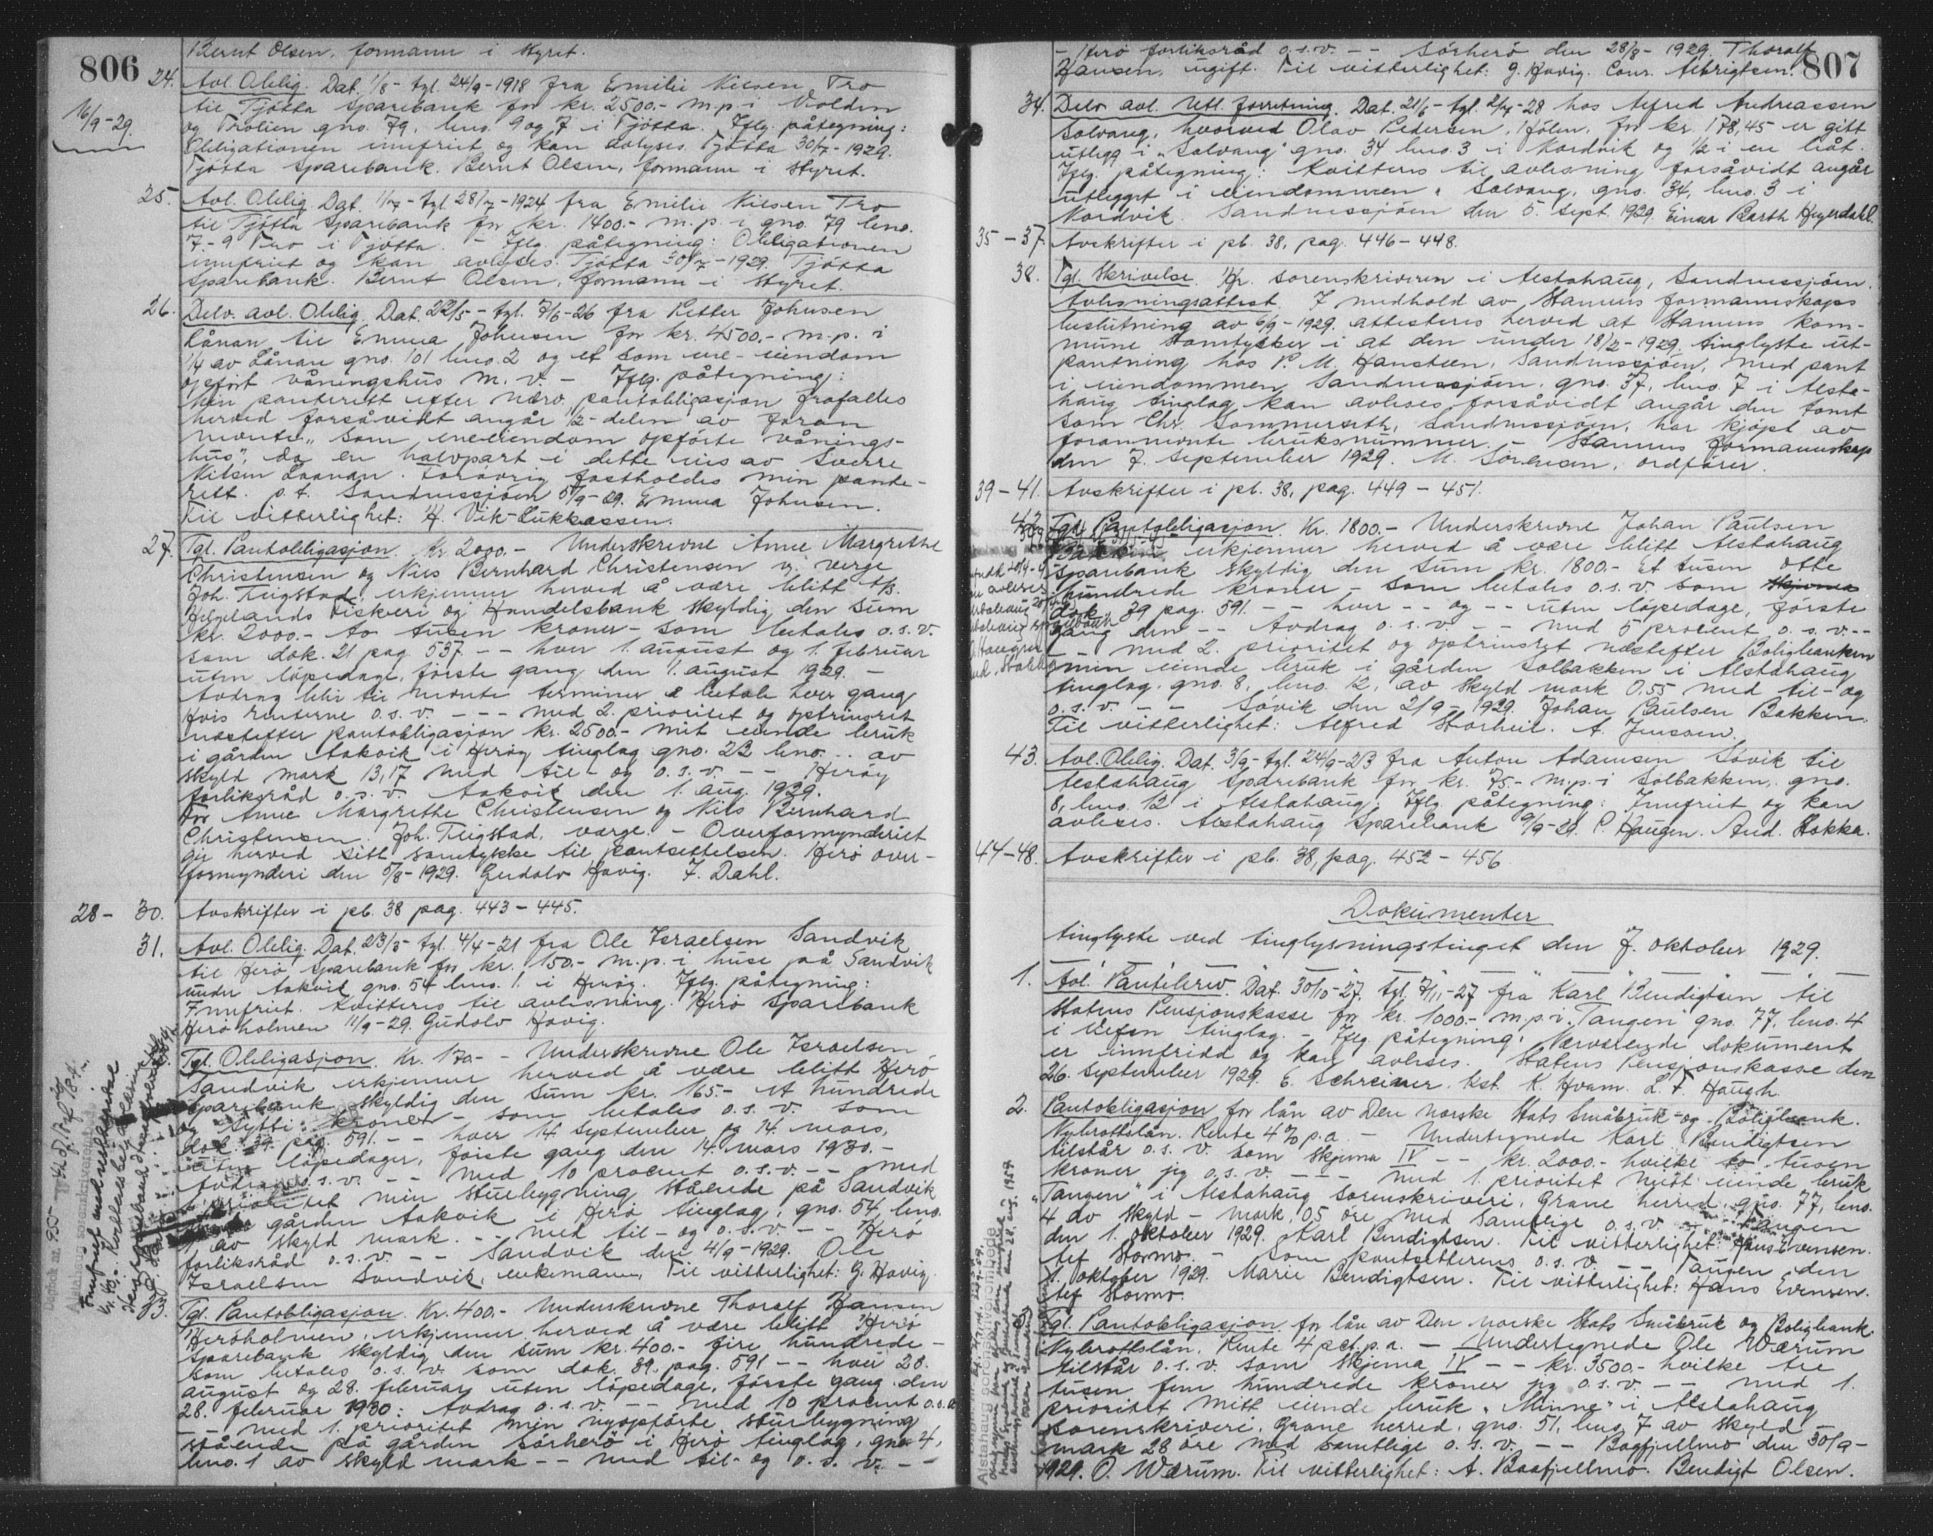 806
Bernt Olsen, formann i styret.
24. Avl. Oblig. Dat. 1/8- tgl. 24/9-1918 fra Emilie Nilsen Tro
16/9-29.
til Tjøtta Sparebank for kr. 2500.- m.p. i
og gno. 79, bno. 9 og 7 i Tjøtta. Iflg. påtegning:
Obligationen innfriet og kan avlyses. Tjøtta 30/7-1929.
Tjøtta Sparebank. Bernt Olsen, formann i styret.
25. Avl. Oblig. Dat. 1/7- tgl. 28/7-1924 fra Emilie Nilsen Tro
til Tjøtta Sparebank for kr. 1400.- m.p. i gno. 79 bno.
7-9 Tro i Tjøtta. - Iflg. påtegning: Obligationen
innfriet og kan avlyses. Tjøtta 30/7-1929. Tjøtta
Sparebank. Bernt Olsen, formann i styret.
26. Delv. avl. Oblig. Dat. 22/5- tgl. 7/6-26 fra Petter Johnsen
Lånan til Emma Johnsen for kr. 4500.- m.p. i
1/4 av Lånan gno. 101 bno. 2 og et som ene-eiendom
opført våningshus m.v. - Iflg. påtegning:
Min panterett efter nærv. pantobligasjon frafalles
herved forsåvidt angår 1/2-delen av foran
nevnte „som eneeiendom opførte vånings-
hus", da en halvpart i dette eies av Sverre
Nilsen Laanan. Forøvrig fastholdes min pante-
rett. p.t. Sandnessjøen 5/9-29. Emma Johnsen.
Til vitterlighet: H. Vik-Lukkassen.
27. Tgl. Pantobligasjon. Kr. 2000.- Underskrevne Anne Margrethe
Christensen og Nils Bernhard Christensen v. verge
Joh. Fligstad, erkjenner herved å være blitt A/S.
Helgelands Fiskeri og Handelsbank skyldig den sum
kr. 2000.- to tusen kroner - som betales o.s.v.
som dok. 21 pag. 537 - - hver 1. august og 1. februar
uten løpedage, første gang den 1. august 1929. -
Avdrag blir til nevnte terminer å betale hver gang
hvis renterne o.s.v. - - - med 2. prioritet og optrinsret
næstefter pantobligasjon kr. 2500.- mit eiende bruk
i gården Aakvik i Herøy tinglag gno. 23 bno. .. av
skyld mark 13,17 med til- og o.s.v. - - Herøy
forliksråd o.s.v. Aakvik den 1. aug. 1929.
For Anne Margrethe Christensen og Nils Bernhard
Christensen. Joh. Fligstad, værge. - Overformynderiet
gir herved sitt samtykke til pantsettelsen. Herø over-
formynderi den 5/8-1929. Gudolv Hovig. F. Dahl.
28 - 30. Avskrifter i pb. 38 pag. 443-445.
31. Avl. Oblig. Dat. 23/3- tgl. 4/4-21 fra Ole Israelsen Sandvik
til Herø Sparebank for kr. 150.- m.p. i huse på Sandvik
under Aakvik gno. 54 bno. 1 i Herøy. Iflg. påtegning:
Innfriet. Kvitteres til avlesning. Herø Sparebank
Herøholmen 11/9-29. Gudolv Hovig.
Tgl. Obligasjon. Kr. 170.- Underskrevne Ole Israelsen
Sandvik erkjenner herved å være blitt Herø
Sparebank skyldig den sum kr. 165.- Et hundrede
og kroner - som betales o.s.v. som
dok. 39 pag. 591. - - hver 14 september og 14. mars,
uten løpedager, første gang den 14. mars 1930.-
Avdrag o.s.v. - - med 10 procent o.s.v. - - med
prioritet min stuebygning stående på Sandvik
gården Aakvik i Herø tinglag, gno. 54, bno.
1 av skyld mark. - - med til- og o.s.v. - - Herø
forliksråd o.s.v. - - Sandvik den 4/9-1929. Ole
Israelsen Sandvik, enkemann. Til vitterlighet: G. Hovig.
33. Tgl. Pantobligasjon. Kr. 400.- Underskrevne Thoralf Hansen
Herøholmen, erkjenner herved å være blitt Herø
Sparebank skyldig den sum kr. 400.- fire hundrede -
som betales o.s.v. som dok. 39. pag. 591 - - hver 28.
august og 28. februar uten løpedage, første gang den
28. februar 1930: Avdrag o.s.v. - - med 10 procent o.s.v.
- - med 1. prioritet min nyopførte stuebygning
stående på gården Sørherø i Herø tinglag, gno. 4,
bno. 1 av skyld mark - - med til- og o.s.v. - -
807
- Herø forliksråd o.s.v. - - Sørherø den 28/8-1929. Thoralf
Hansen, ugift. Til vitterlighet: G. Hovig. Conr. Albrigtsen.
34. Delv. avl. Utl. forretning. Dat. 21/6- tgl. 2/7-28 hos Alfred Andreassen
Solvang, hvorved Olav Pedersen, Hølen, for kr. 178,45 er gitt
utlegg i „Solvang" gno. 34 bno. 3 i Nordvik og 1/2 i en båt.
Iflg. påtegning: Kvitteres til avlesning forsåvidt angår
utlegget i eiendommen „Solvang, gno. 34, bno. 3 i
Nordvik. Sandnessjøen den 5. sept. 1929. Einar Barth Heyerdahl.
35 - 37. Avskrifter i pb. 38, pag. 446-448.
38. Tgl. Skrivelse. Hr. sorenskriveren i Alstahaug, Sandnessjøen.
Avlesningsattest. I medhold av Stamnes formannskaps
beslutning av 6/9-1929. attesteres herved at Stamnes kom-
mune samtykker i at den under 18/2-1929. tinglyste ut-
pantning hos P. M. Hansteen, Sandnessjøen, med pant
i eiendommen Sandnessjøen, gno. 37, bno. 7 i Alsta-
haug tinglag kan avleses forsåvidt angår den tomt
som Chr. Sommerseth, Sandnessjøen, har kjøpt av
forannevnte bruksnummer. - Stamnes formannskap
den 7. september 1929. M. Sørensen, ordfører.
39 - 41. Avskrifter i pb. 38, pag. 449 - 451.
42. Tgl. Pantobligasjon. Kr. 1800.- Underskrevne Johan Paulsen
erkjenner herved å være blitt Alstahaug
Sparebank skyldig den sum kr. 1800.- Et tusen otte
hundrede kroner - som betales o.s.v. som
dok. 39 pag. 591. - - hver - - og - - uten løpedage, første
gang den - - Avdrag o.s.v. - - med 5 procent o.s.v. - -
- - med 2. prioritet og optrinsret næstefter Boligbanken
min eiende bruk i gården Solbakken i Alstahaug
tinglag, gno. 8, bno. 12, av skyld mark 0.55 med til- og
o.s.v. - - Søvik den 2/9-1929. Johan Paulsen Bakken.
Til vitterlighet: Alfred Storheil. A. Jenssen.
43. Avl. Oblig. Dat. 3/9- tgl. 24/9-23 fra Anton Adamsen Søvik til
Alstahaug Sparebank for kr. 75.- m.p. i Solbakken, gno.
8, bno. 12 i Alstahaug. Iflg. påtegning: Innfriet og kan
avleses. Alstahaug Sparebank 9/9-29. P. Haugen. And. Stokka.
44-48. Avskrifter i pb. 38, pag. 452-456
Dokumenter
tinglyste ved tinglysningstinget den 7. oktober 1929.
1. Avl. Pantebrev. Dat. 30/10-27. tgl. 7/11-27 fra Karl Bendigtsen til
Statens Pensjonskasse for kr. 1000.- m.p. i „Tangen" gno. 77, bno. 4
i Vefsn tinglag. - Iflg. påtegning: Nærværende dokument
er innfridd og kan avleses. Statens Pensjonskasse den
26. september 1929. E. Schreiner. kst. K. Hvam. L. F. Haugh.
2. Pantobligasjon for lån av Den norske Stats Småbruk- og Boligbank.
Nybrottslån. Rente 4% p.a. - Undertegnede Karl Bendigtsen
tilstår o.s.v. som skjema IV - - kr. 2000.- hvilke to tusen
kroner jeg o.s.v. - - - med 1. prioritet mitt eiende bruk
„Tangen" i Alstahaug sorenskriveri, Grane herred, gno. 77, bno.
4 av skyld - mark, 05 øre med samtlige o.s.v. - Tangen
den 1. oktober 1929. Karl Bendigtsen. Til vitterlighet: Hans Evensen.
Alf Stormo. - Som pantsetterens o.s.v. - - Tangen den
1. oktober 1929. Marie Bendigtsen. Til vitterlighet: Hans Evensen.
Alf Stormo.
3. Tgl. Pantobligasjon for lån av Den norske Stats Småbruk og Boligbank.
Nybrottslån. Rente 4 pct. p.a. - Undertegnede Ole Wærum
tilstår o.s.v. som skjema IV - - kr. 3500.- hvilke tre
tusen fem hundrede kroner jeg o.s.v. - - med 1.
prioritet mitt eiende bruk „Minne" i Alstahaug
sorenskriveri, Grane herred, gno. 51, bno. 7 av skyld
mark 28 øre med samtlige o.s.v. - - Bogfjellmo den 30/9-
1929. O. Wærum. Til vitterlighet: A. Baafjellmo. Bendigt Olsen.